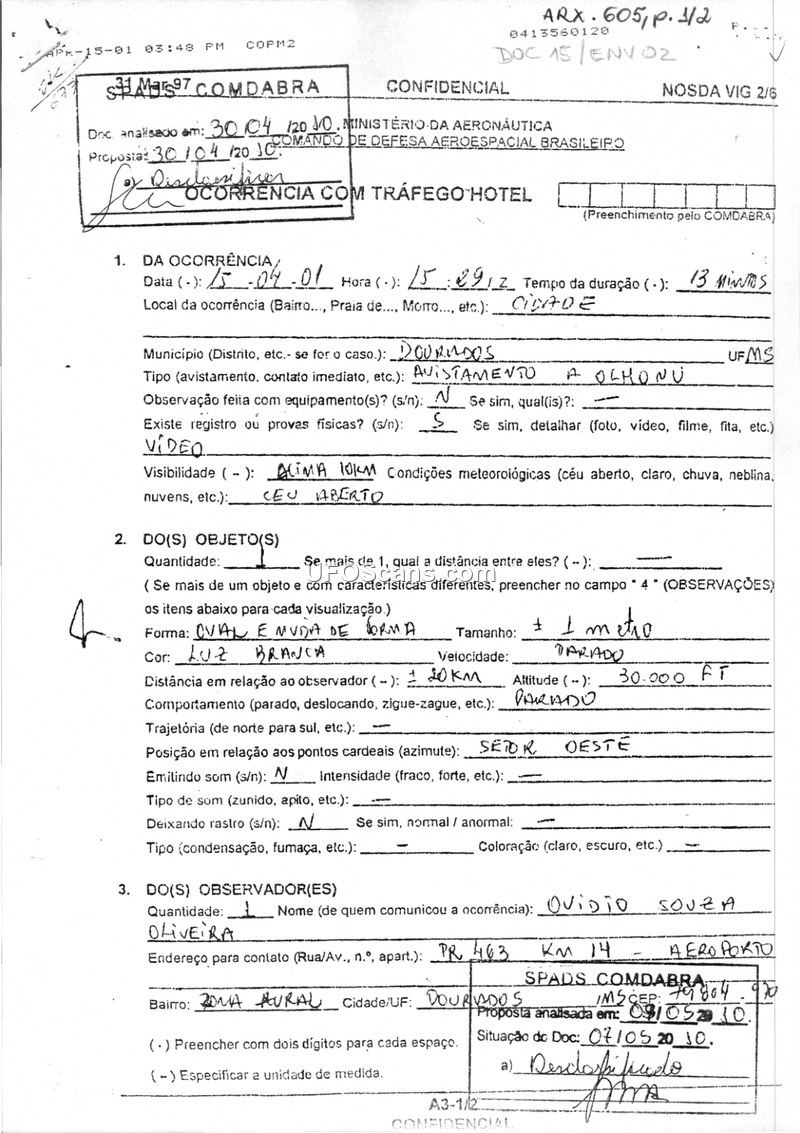 ARX. 605, p. 1/2
APR-15-01 03:48 PM COPM2 0413560120 P.
DOC 15 / ENV 02
31 Mar 97 CONFIDENCIAL NOSDA VIG 2/6
SPADS COMDABRA
Doc. analisado em: 30/04/2010. MINISTÉRIO DA AERONÁUTICA
Proposta: 30/04/2010. COMANDO DE DEFESA AEROESPACIAL BRASILEIRO
a) Desclassificar
OCORRÊNCIA COM TRÁFEGO HOTEL
(Preenchimento pelo COMDABRA)
1. DA OCORRÊNCIA
Data (·): 15-04-01 Hora (·): 15:29/Z Tempo da duração (·): 13 MINUTOS
Local da ocorrência (Bairro..., Praia de..., Morro..., etc.): CIDADE
Município (Distrito, etc.- se for o caso.): DOURADOS UF MS
Tipo (avistamento, contato imediato, etc.): AVISTAMENTO A OLHO NU
Observação feita com equipamento(s)? (s/n): N Se sim, qual(is)?: —
Existe registro ou provas físicas? (s/n): S Se sim, detalhar (foto, vídeo, filme, fita, etc.)
VÍDEO
Visibilidade (–): ACIMA 10KM Condições meteorológicas (céu aberto, claro, chuva, neblina,
nuvens, etc.): CEU ABERTO
2. DO(S) OBJETO(S)
Quantidade: 1 Se mais de 1, qual a distância entre eles? (–): —
UFOScans.com
( Se mais de um objeto e com características diferentes, preencher no campo " 4 " (OBSERVAÇÕES)
os itens abaixo para cada visualização.)
Forma: OVAL E MUDA DE FORMA Tamanho: ± 1 metro
Cor: LUZ BRANCA Velocidade: PARADO
Distância em relação ao observador (–): ± 20KM Altitude (–): 30.000 FT
Comportamento (parado, deslocando, zigue-zague, etc.): PARADO
Trajetória (de norte para sul, etc.): —
Posição em relação aos pontos cardeais (azimute): SETOR OESTE
Emitindo som (s/n): N Intensidade (fraco, forte, etc.): —
Tipo de som (zunido, apito, etc.): —
Deixando rastro (s/n): N Se sim, normal / anormal: —
Tipo (condensação, fumaça, etc.): — Coloração (claro, escuro, etc.) —
3. DO(S) OBSERVADOR(ES)
Quantidade: 1 Nome (de quem comunicou a ocorrência): OVIDIO SOUZA
OLIVEIRA
Endereço para contato (Rua/Av., n.º, apart.): PR 463 KM 14 - AEROPORTO
SPADS COMDABRA
Bairro: ZONA RURAL Cidade/UF: DOURADOS /MS CEP: 79804.970
Proposta analisada em: 03/05 2010.
(·) Preencher com dois dígitos para cada espaço.
Situação do Doc: 07/05 2010.
a) Desclassificado
(–) Especificar a unidade de medida.
A3-1/2
CONFIDENCIAL